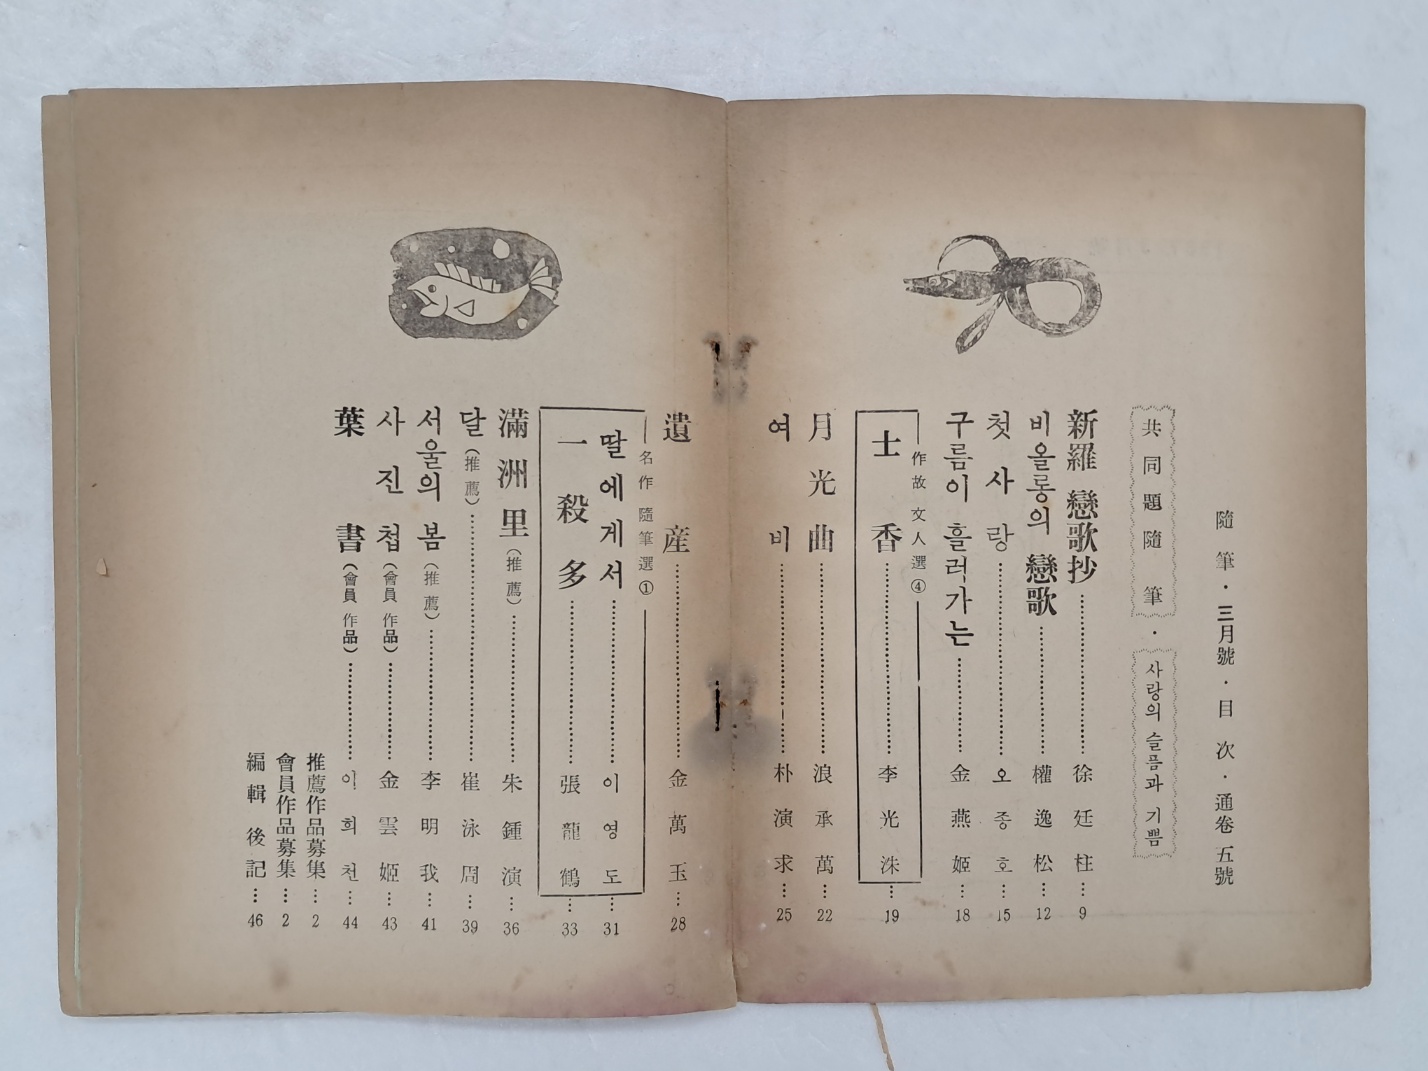 隨筆・三月號・目次・通卷五號
共同題隨筆・사랑의 슬픔과 기쁨
新羅 戀歌抄……徐廷柱…9
비올롱의 戀歌……權逸松…12
첫사랑……오종호…15
구름이 흘러가는……金燕姬…18
作故文人選④
土香……李光洙…19
月光曲……浪承萬…22
여비……朴演求…25
遺産……金萬玉…28
名作隨筆選①
딸에게서……이영도…31
一殺多……張龍鶴…33
滿洲里(推薦)……朱鍾演…36
달(推薦)……崔泳周…39
서울의 봄(推薦)……李明我…41
사진첩(會員作品)……金雲姬…43
葉書(會員作品)……이희천…44
推薦作品募集…2
會員作品募集…2
編輯後記…46